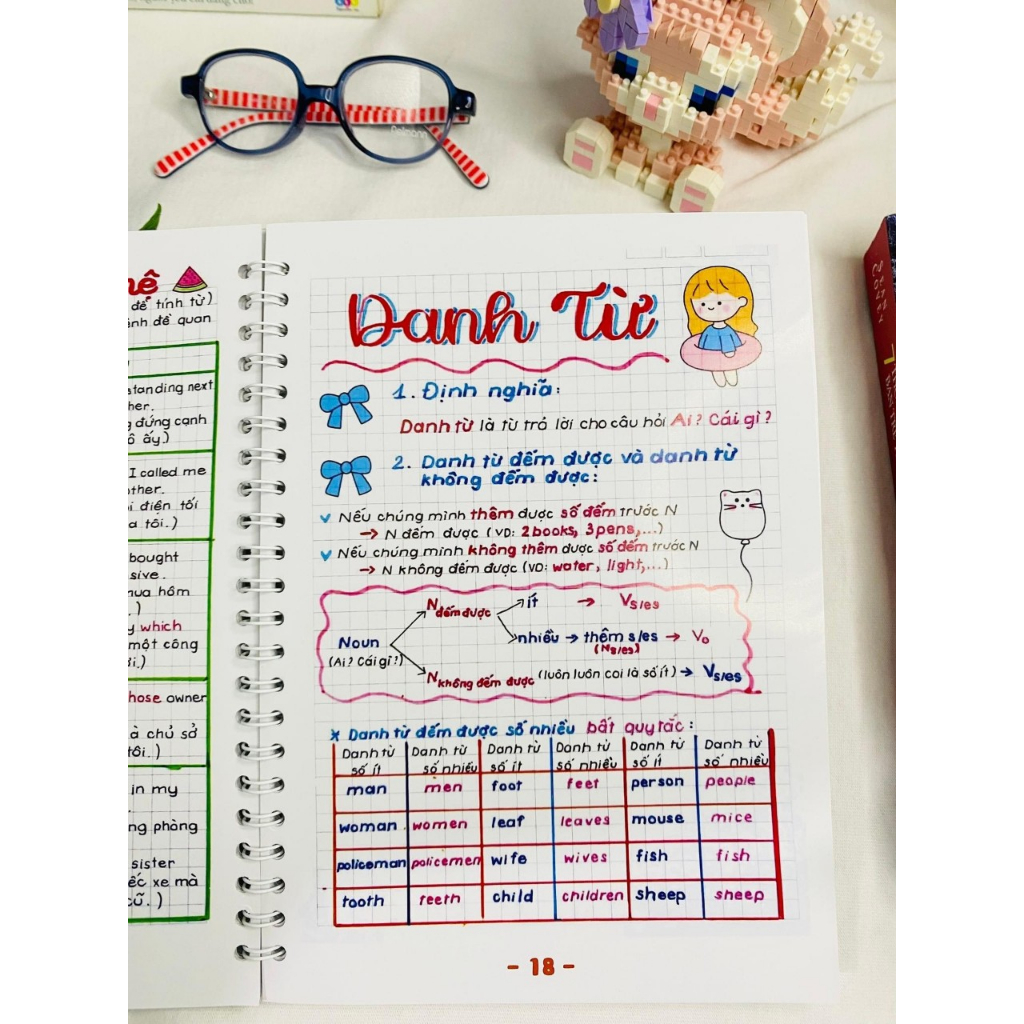 để tính từ)
đề quan
standing next
her.
đứng cạnh
ấy.)
I called me
điện tối
tôi.)
bought
sive.
hôm
which
một công
owner
chủ sở
tôi.)
in my
phòng
sister
xe mà
cũ.)
Danh Từ
1. Định nghĩa:
Danh từ là từ trả lời cho câu hỏi Ai? Cái gì?
2. Danh từ đếm được và danh từ
không đếm được:
Nếu chúng mình thêm được số đếm trước N
→ N đếm được (VD: 2books, 3pens,...)
Nếu chúng mình không thêm được số đếm trước N
→ N không đếm được (VD: water, light,...)
N đếm được → ít → Vs/es
Noun
(Ai? Cái gì?)
nhiều → thêm s/es → V₀
(Ns/es)
N không đếm được (luôn luôn coi là số ít) → Vs/es
* Danh từ đếm được số nhiều bất quy tắc:
Danh từ số ít Danh từ số nhiều Danh từ số ít Danh từ số nhiều Danh từ số ít Danh từ số nhiều
man men foot feet person people
woman women leaf leaves mouse mice
policeman policemen wife wives fish fish
tooth teeth child children sheep sheep
- 18 -